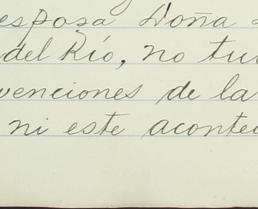 esposa Doña
del Río, no tu
venciones de la
ni este aconte